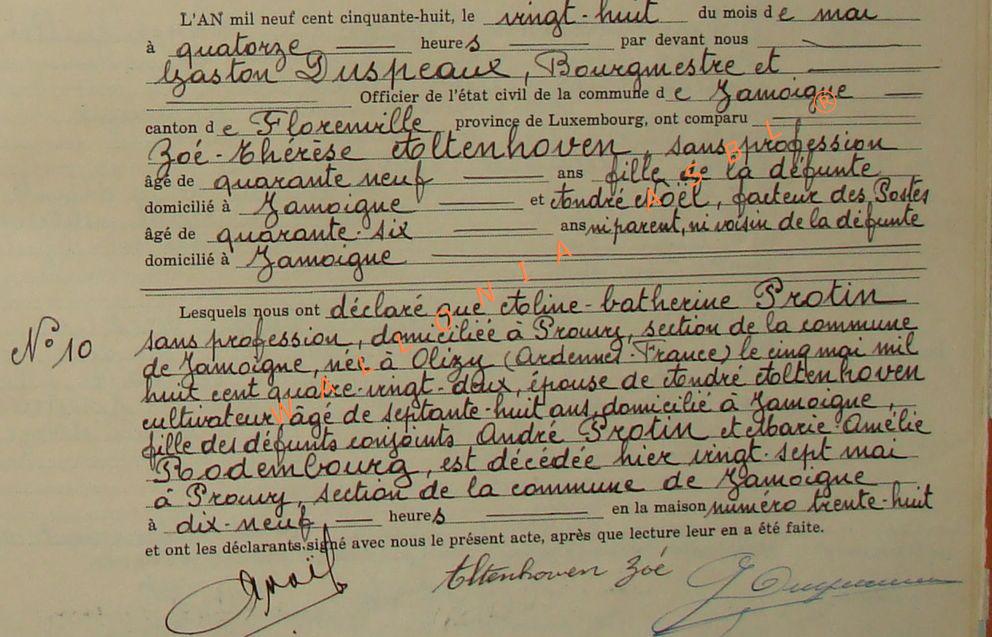 L'AN mil neuf cent cinquante-huit, le vingt-huit du mois de mai
à quatorze heures par devant nous
Gaston Duspeaux, Bourgmestre et
Officier de l'état civil de la commune de Jamoigne
canton de Florenville province de Luxembourg, ont comparu
Zoé-Thérèse Altenhoven, sans profession
âgé de quarante neuf ans fille de la défunte
domicilié à Jamoigne et André Noël, facteur des Postes
âgé de quarante-six ans ni parent, ni voisin de la défunte
domicilié à Jamoigne
Lesquels nous ont déclaré que Aline-Catherine Protin
N° 10
sans profession, domiciliée à Prouvy, section de la commune
de Jamoigne, née à Olizy (Ardennes-France) le cinq mai mil
huit cent quatre-vingt-deux, épouse de André Altenhoven
cultivateur âgé de septante-huit ans, domicilié à Jamoigne,
fille des défunts conjoints André Protin et Marie Amélie
Rodembourg, est décédée hier vingt-sept mai
à Prouvy, section de la commune de Jamoigne
à dix-neuf heures en la maison numéro trente-huit
et ont les déclarants signé avec nous le présent acte, après que lecture leur en a été faite.
Altenhoven Zoé
WALLONIA ASBL ®